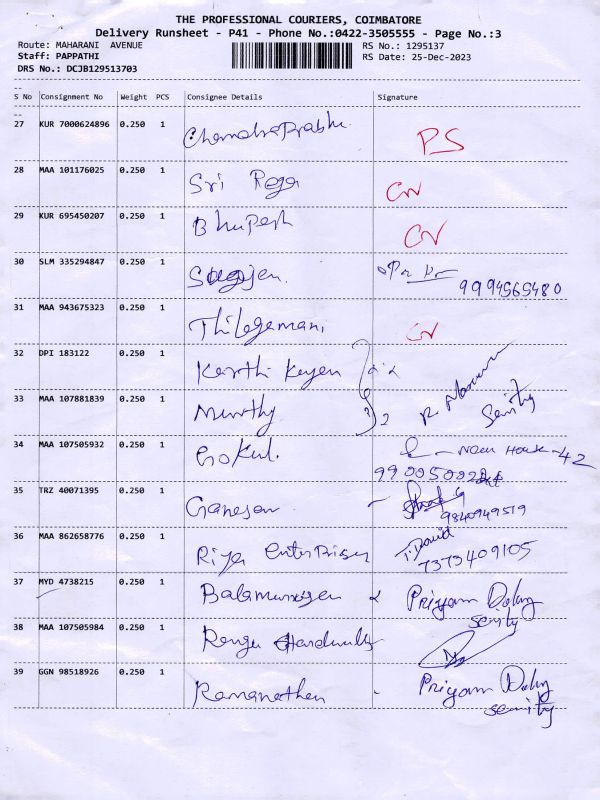 THE PROFESSIONAL COURIERS, COIMBATORE
Delivery Runsheet - P41 - Phone No.:0422-3505555 - Page No.:3
Route: MAHARANI AVENUE RS No.: 1295137
Staff: PAPPATHI RS Date: 25-Dec-2023
DRS No.: DCJB129513703
S No Consignment No Weight PCS Consignee Details Signature
27 KUR 7000624896 0.250 1 Chandraprabhu. PS
28 MAA 101176025 0.250 1 Sri Rega CN
29 KUR 695450207 0.250 1 Bhupesh CN
30 SLM 335294847 0.250 1
9994565480
31 MAA 943675323 0.250 1 Thilegemani CN
32 DPI 183122 0.250 1 Karthi Keyen
33 MAA 107881839 0.250 1 Murthy 2
34 MAA 107505932 0.250 1 Gokul. House - 42
35 TRZ 40071395 0.250 1 Ganesan
9840949519
36 MAA 862658776 0.250 1 Riya Enterprises T. David
7373409105
37 MYD 4738215 0.250 1 Balamurugen Priyam
38 MAA 107505984 0.250 1 Renga
39 GGN 98518926 0.250 1 Ramanathen - Priyam